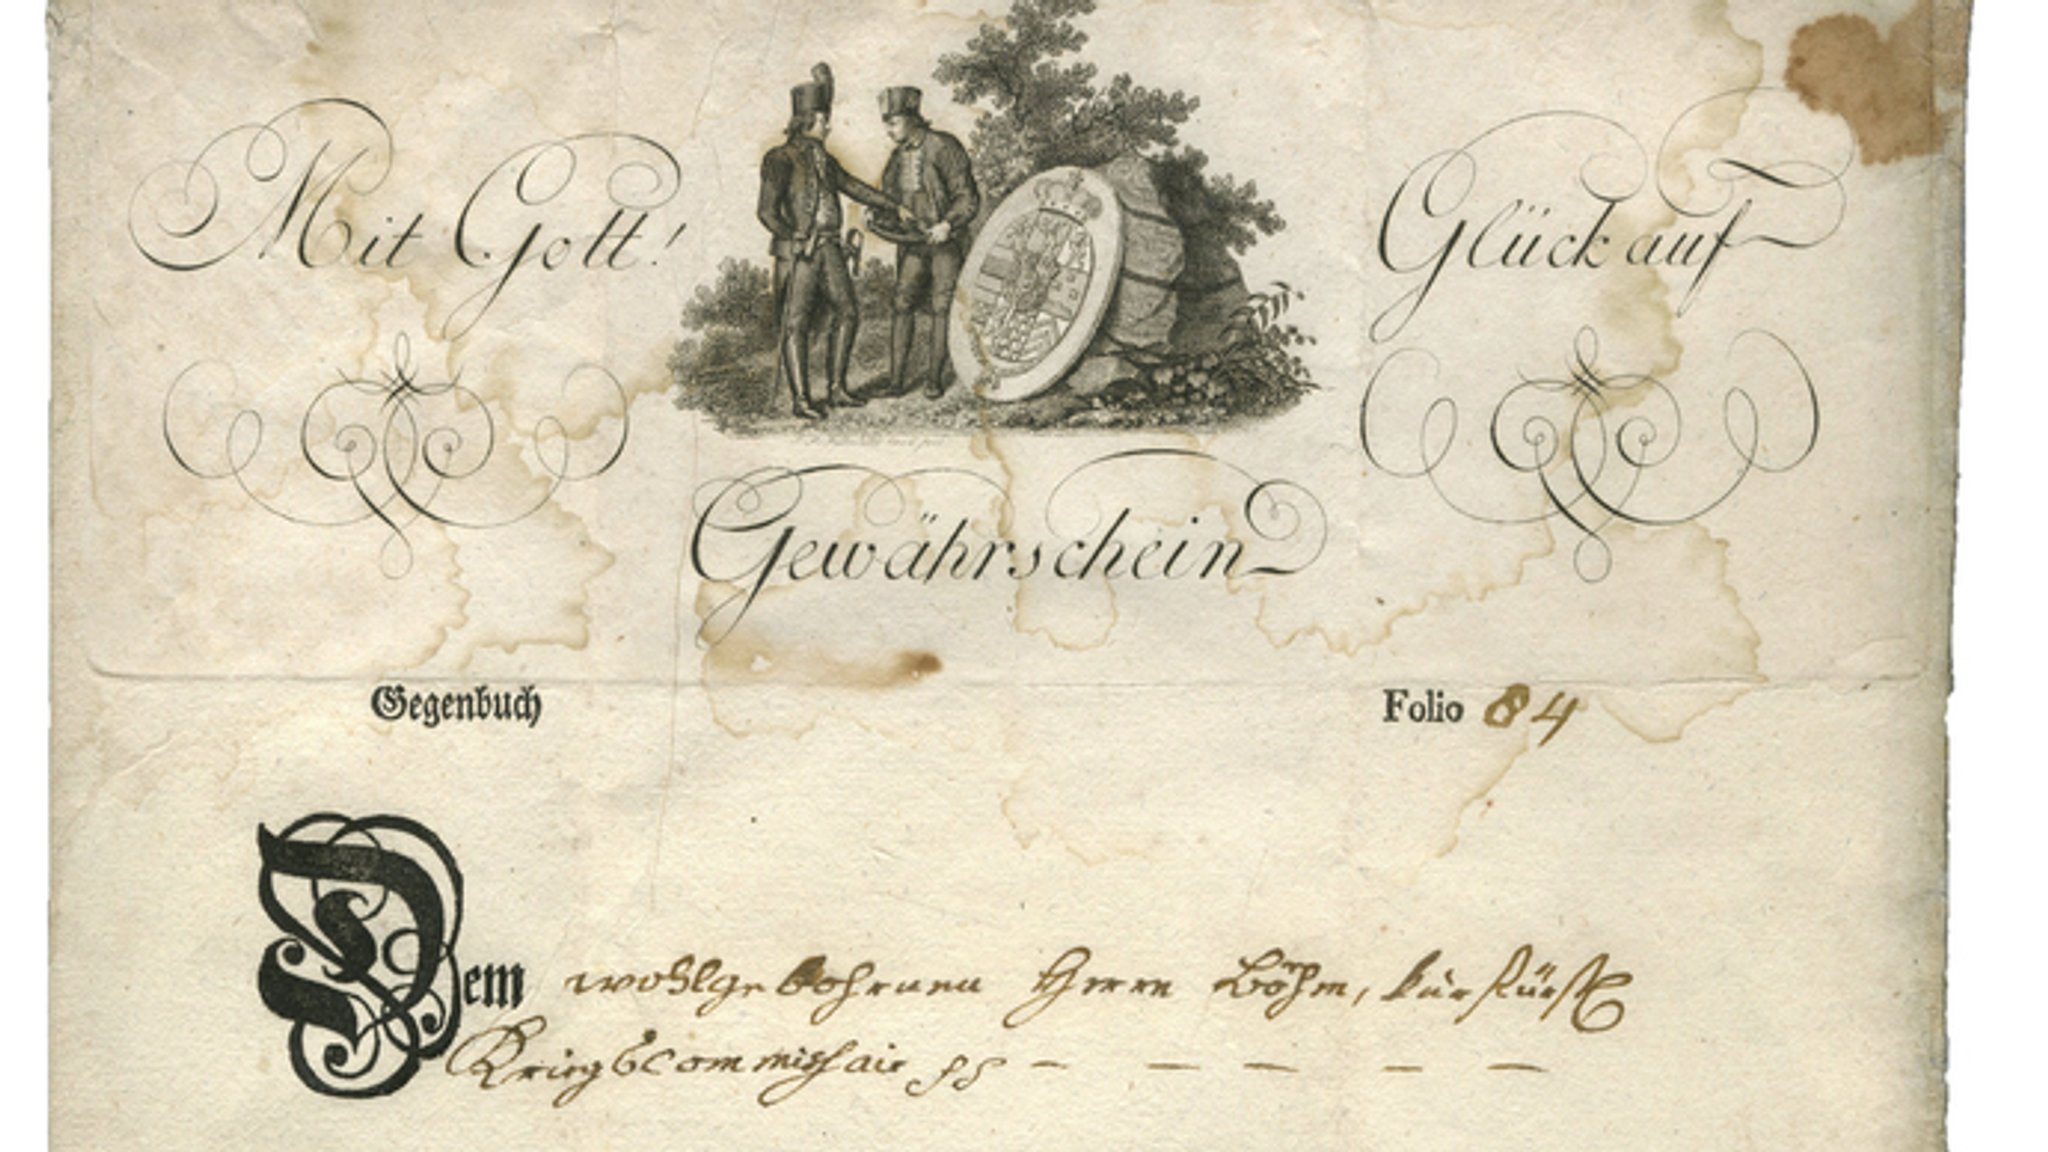 Mit Gott! Glück auf
Gewährschein
Gegenbuch Folio 84
Dem wohlgebohrnen Herrn Böhm, kurfürstl
Kriegscommissair